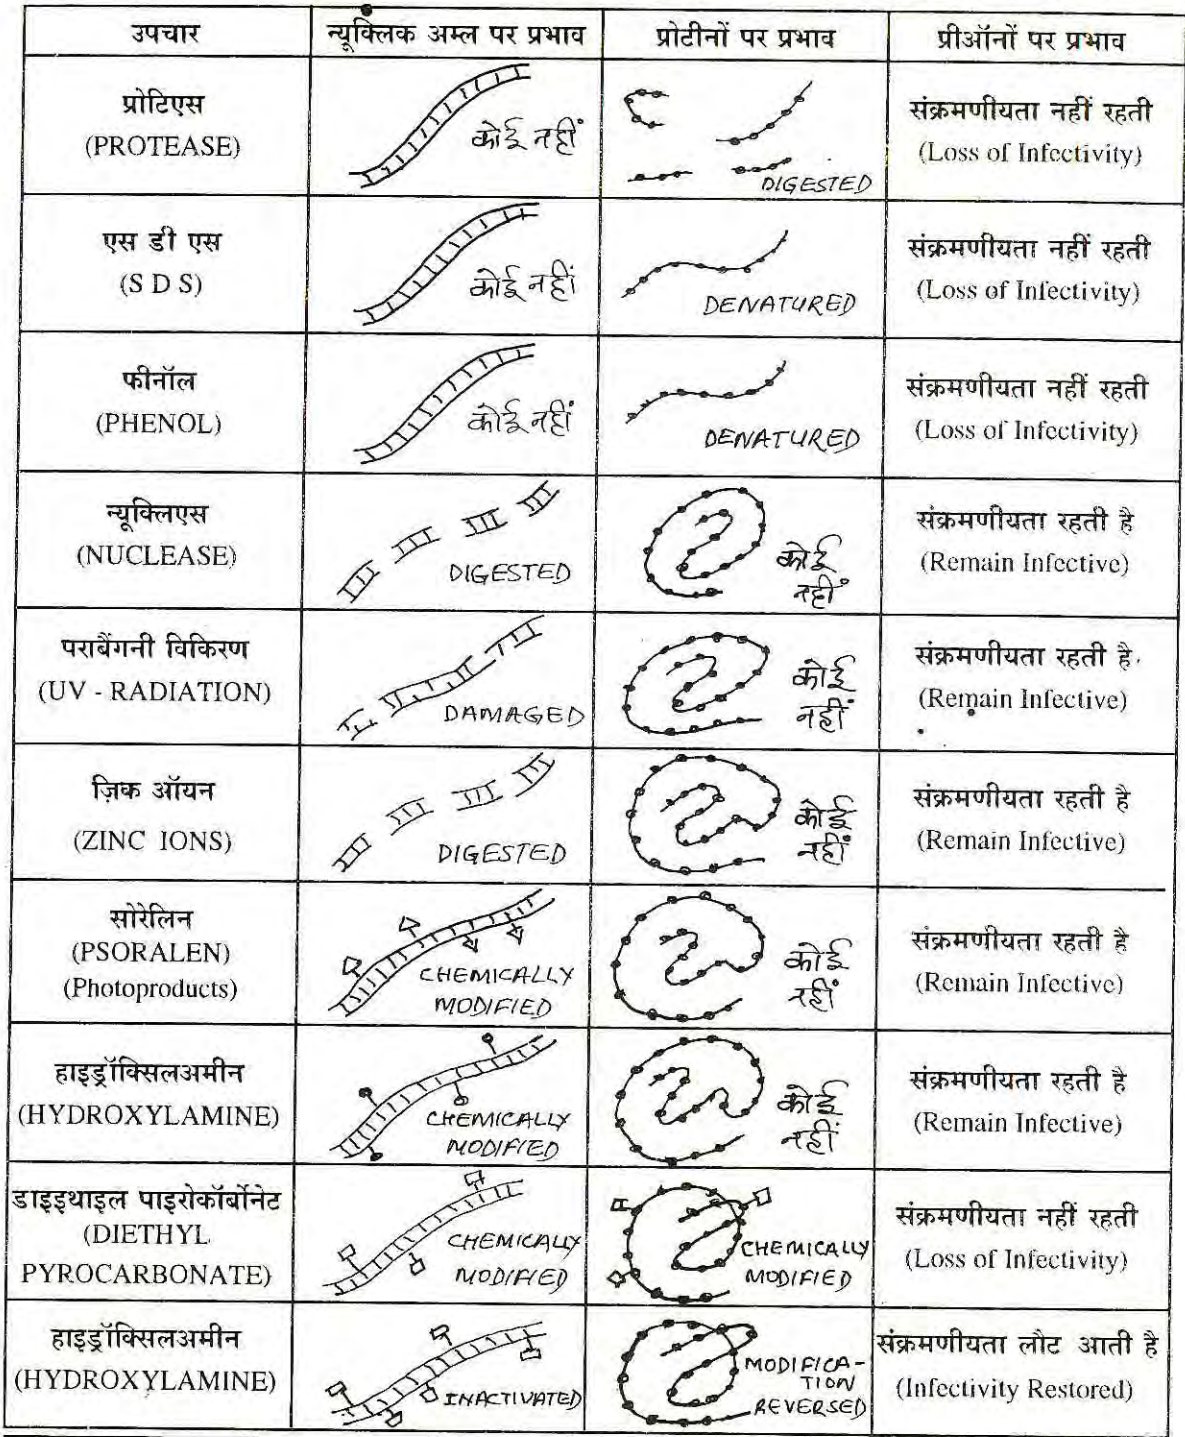 उपचार
न्यूक्लिक अम्ल पर प्रभाव
प्रोटीनों पर प्रभाव
प्रीऑनों पर प्रभाव
प्रोटिएस
(PROTEASE)
कोई नहीं
DIGESTED
संक्रमणीयता नहीं रहती
(Loss of Infectivity)
एस डी एस
(S D S)
कोई नहीं
DENATURED
संक्रमणीयता नहीं रहती
(Loss of Infectivity)
फीनॉल
(PHENOL)
कोई नहीं
DENATURED
संक्रमणीयता नहीं रहती
(Loss of Infectivity)
न्यूक्लिएस
(NUCLEASE)
DIGESTED
कोई
नहीं
संक्रमणीयता रहती है
(Remain Infective)
पराबैंगनी विकिरण
(UV - RADIATION)
DAMAGED
कोई
नहीं
संक्रमणीयता रहती है
(Remain Infective)
ज़िक ऑयन
(ZINC IONS)
DIGESTED
कोई
नहीं
संक्रमणीयता रहती है
(Remain Infective)
सोरेलिन
(PSORALEN)
(Photoproducts)
CHEMICALLY
MODIFIED
कोई
नहीं
संक्रमणीयता रहती है
(Remain Infective)
हाइड्रॉक्सिलअमीन
(HYDROXYLAMINE)
CHEMICALLY
MODIFIED
कोई
नहीं
संक्रमणीयता रहती है
(Remain Infective)
डाइइथाइल पाइरोकॉर्बोनेट
(DIETHYL
PYROCARBONATE)
CHEMICALLY
MODIFIED
CHEMICALLY
MODIFIED
संक्रमणीयता नहीं रहती
(Loss of Infectivity)
हाइड्रॉक्सिलअमीन
(HYDROXYLAMINE)
INACTIVATED
MODIFICA-
TION
REVERSED
संक्रमणीयता लौट आती है
(Infectivity Restored)